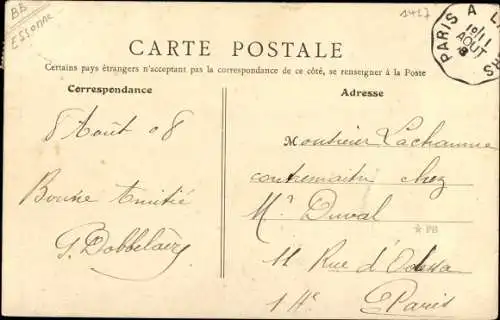 BB
Essonne
1427
PARIS A
10/11
AOUT
8
CARTE POSTALE
Certains pays étrangers n'acceptant pas la correspondance de ce côté, se renseigner à la Poste
Correspondance
Adresse
8 Août 08
Bonne Amitié
G. Bobbelaëre
Monsieur Lachaume
contremaitre chez
Mr Duval
★ PB
11 Rue d'Odessa
Paris